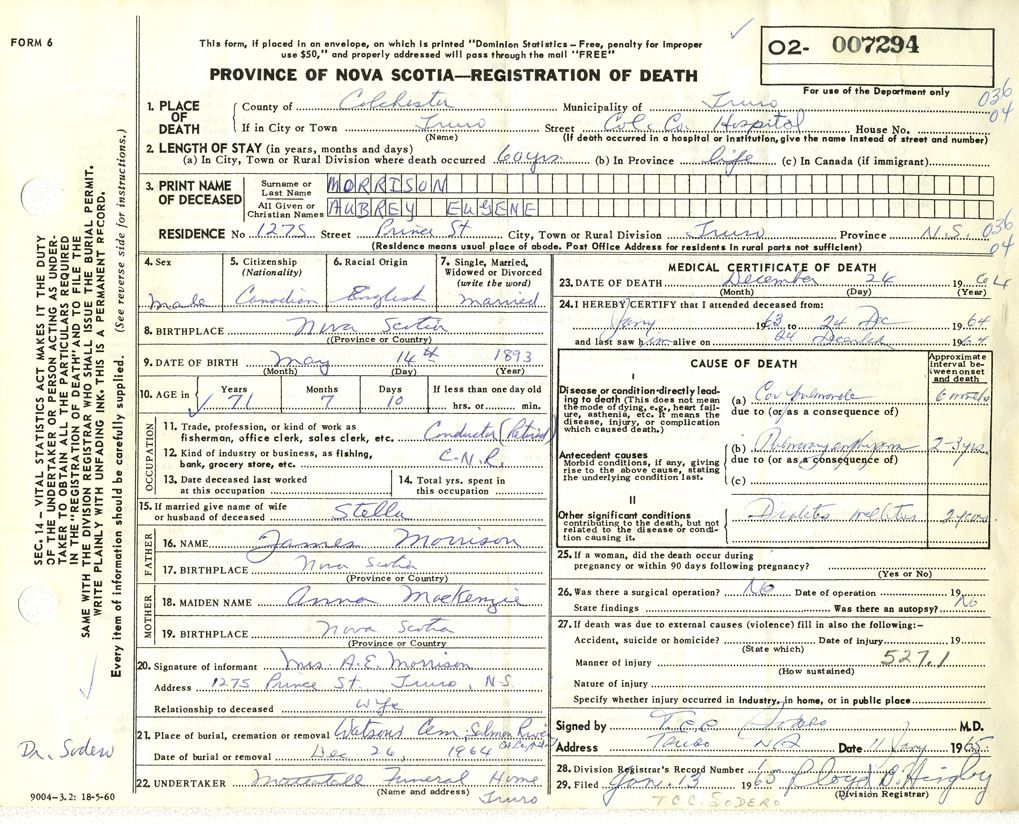 FORM 6
This form, if placed in an envelope, on which is printed "Dominion Statistics – Free, penalty for improper
use $50," and properly addressed will pass through the mail "FREE"
O2- 007294
For use of the Department only
PROVINCE OF NOVA SCOTIA—REGISTRATION OF DEATH
036
04
1. PLACE OF DEATH
County of Colchester Municipality of Truro
If in City or Town Truro Street Col. Co. Hospital House No.
(Name) (If death occurred in a hospital or institution, give the name instead of street and number)
2. LENGTH OF STAY (in years, months and days)
(a) In City, Town or Rural Division where death occurred 60 yrs. (b) In Province life (c) In Canada (if immigrant)
3. PRINT NAME OF DECEASED
Surname or Last Name MORRISON
All Given or Christian Names AUBREY EUGENE
RESIDENCE No 1275 Street Prince St City, Town or Rural Division Truro Province N.S. 036
04
(Residence means usual place of abode. Post Office Address for residents in rural parts not sufficient)
4. Sex
male
5. Citizenship
(Nationality)
Canadian
6. Racial Origin
English
7. Single, Married,
Widowed or Divorced
(write the word)
married
8. BIRTHPLACE Nova Scotia
(Province or Country)
9. DATE OF BIRTH May 14th 1893
(Month) (Day) (Year)
10. AGE in
Years Months Days If less than one day old
71 7 10 hrs. or min.
OCCUPATION
11. Trade, profession, or kind of work as
fisherman, office clerk, sales clerk, etc. Conductor (Retired)
12. Kind of industry or business, as fishing,
bank, grocery store, etc. C.N.R.
13. Date deceased last worked
at this occupation
14. Total yrs. spent in
this occupation
15. If married give name of wife
or husband of deceased Stella
FATHER
16. NAME James Morrison
17. BIRTHPLACE Nova Scotia
(Province or Country)
MOTHER
18. MAIDEN NAME Anna MacKenzie
19. BIRTHPLACE Nova Scotia
(Province or Country)
20. Signature of informant Mrs. A.E. Morrison
Address 1275 Prince St. Truro, N.S.
Relationship to deceased wife
21. Place of burial, cremation or removal Watsons Cem, Salmon River
Date of burial or removal Dec 26, 1964
22. UNDERTAKER Mattatall Funeral Home
(Name and address) Truro
MEDICAL CERTIFICATE OF DEATH
23. DATE OF DEATH December 24 1964
(Month) (Day) (Year)
24. I HEREBY CERTIFY that I attended deceased from:
Jany 1963 to 24 Dec 1964
and last saw him alive on 24 December 1964
CAUSE OF DEATH
Approximate interval between onset and death
I
Disease or condition directly leading to death (This does not mean the mode of dying, e.g., heart failure, asthenia, etc. It means the disease, injury, or complication which caused death.)
(a) Cor pulmonale
due to (or as a consequence of)
Antecedent causes
Morbid conditions, if any, giving rise to the above cause, stating the underlying condition last.
(b) Pulmonary emphysema 2-3 yrs.
due to (or as a consequence of)
(c)
II
Other significant conditions
contributing to the death, but not related to the disease or condition causing it.
Diabetes mellitus
25. If a woman, did the death occur during
pregnancy or within 90 days following pregnancy?
(Yes or No)
26. Was there a surgical operation? No Date of operation 19
State findings Was there an autopsy? No
27. If death was due to external causes (violence) fill in also the following:-
Accident, suicide or homicide? Date of injury 19
(State which)
527.1
Manner of injury
(How sustained)
Nature of injury
Specify whether injury occurred in industry, in home, or in public place
Signed by T.C.C. Sodero M.D.
Address Truro NS Date 11 Jany 1965
28. Division Registrar's Record Number
29. Filed Jan. 13 1965 Lloyd
(Division Registrar)
T C C SODERO
SEC. 14 – VITAL STATISTICS ACT MAKES IT THE DUTY
OF THE UNDERTAKER OR PERSON ACTING AS UNDER-
TAKER TO OBTAIN ALL THE PARTICULARS REQUIRED
IN THE "REGISTRATION OF DEATH" AND TO FILE THE
SAME WITH THE DIVISION REGISTRAR WHO SHALL ISSUE THE BURIAL PERMIT.
WRITE PLAINLY WITH UNFADING INK. THIS IS A PERMANENT RECORD.
Every item of information should be carefully supplied. (See reverse side for instructions.)
Dr. Sodero
9004-3.2: 18-5-60